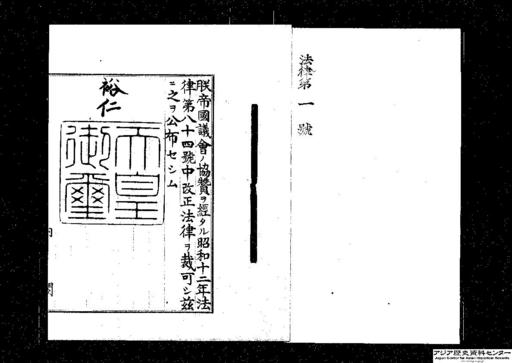 法律第一號
朕帝國議會ノ協贊ヲ經タル昭和十二年法
律第八十四號中改正法律ヲ裁可シ茲
ニ之ヲ公布セシム
裕仁
天皇
御璽
内閣
アジア歴史資料センター
Japan Center for Asian Historical Records